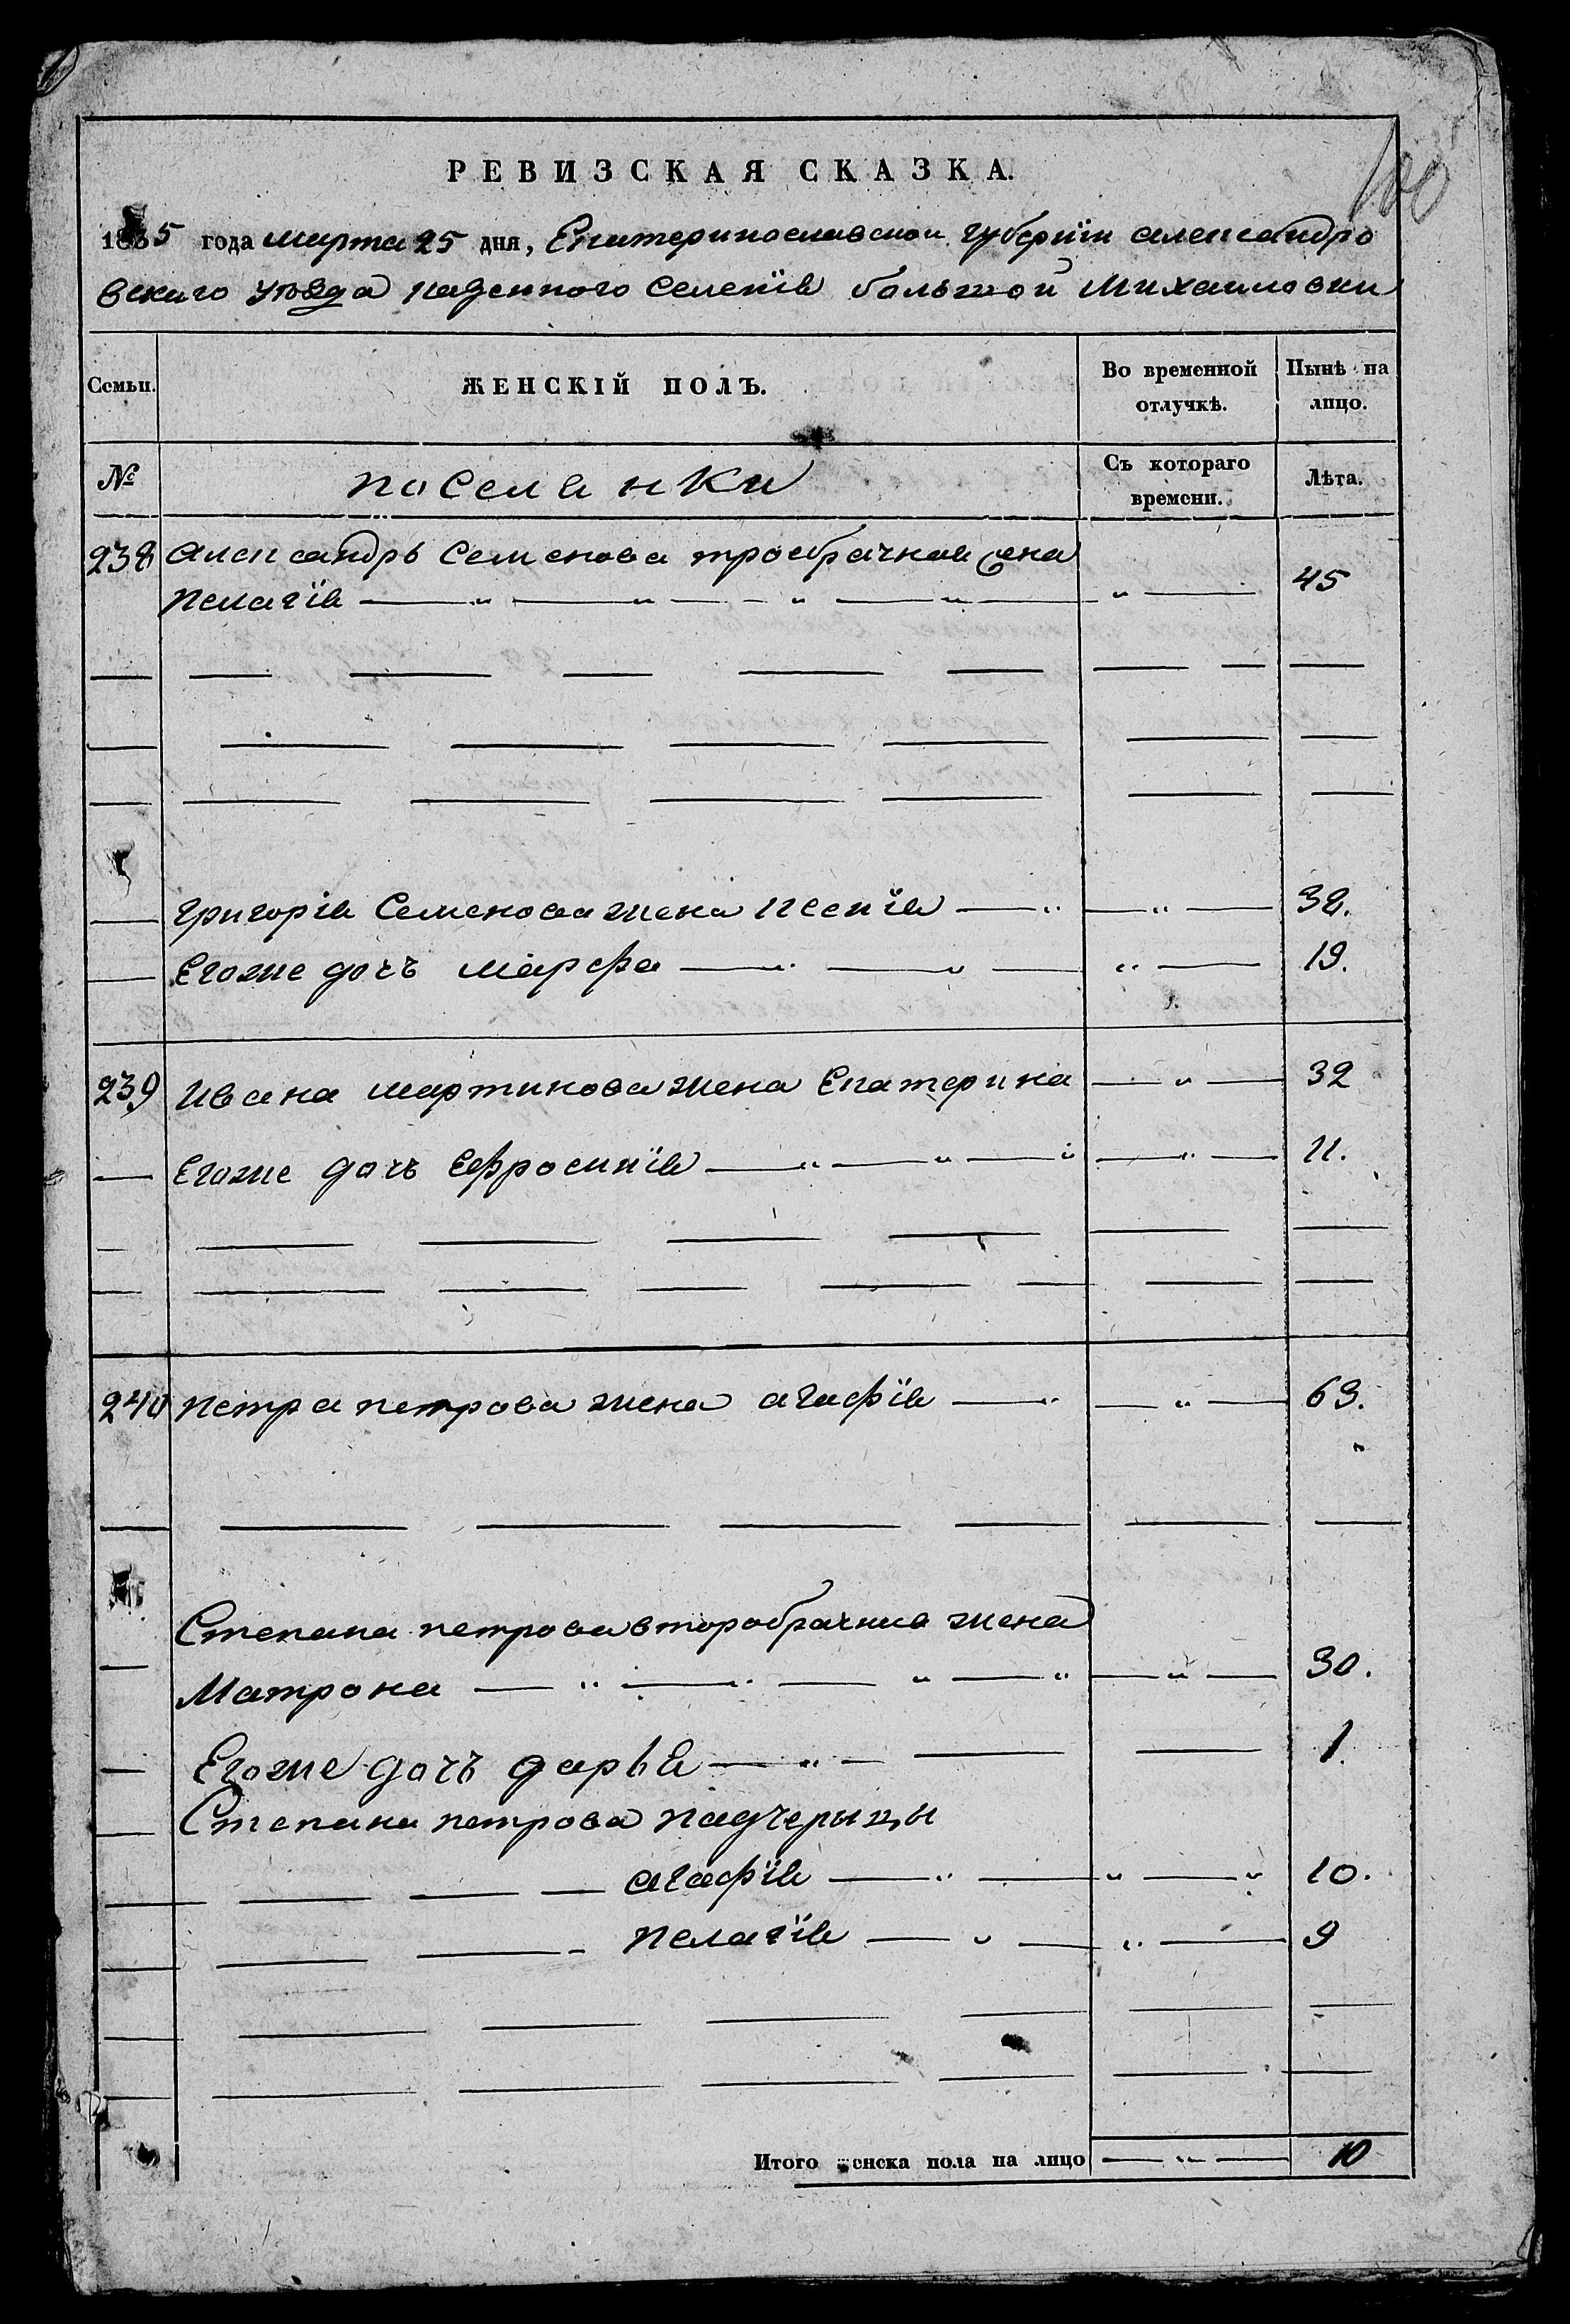 100
РЕВИЗСКАЯ СКАЗКА.
1835 года марта 25 дня, Екатеринославской губернїи александро
вскаго уѣзда казенного селенїя большой Михаиловки
Семьи. ЖЕНСКІЙ ПОЛЪ. Во временной отлучкѣ. Нынѣ на лицо.
№ поселянки Съ котораго времени. Лѣта.
238 александръ Семенова троебрачная жена
пелагїя 45
григорія Семенова жена ксенїя 38.
Егоже дочь марфа 19.
239 ивана мартинова жена Екатерина 32
Егоже дочь Ефросинїя 11.
240 петра петрова жена агафїя 63.
Степана петрова второбрачная жена
Матрона 30.
Егоже дочь дарья 1.
Степана петрова падчерыцы
агафїя 10.
пелагїя 9
Итого женска пола на лицо 10